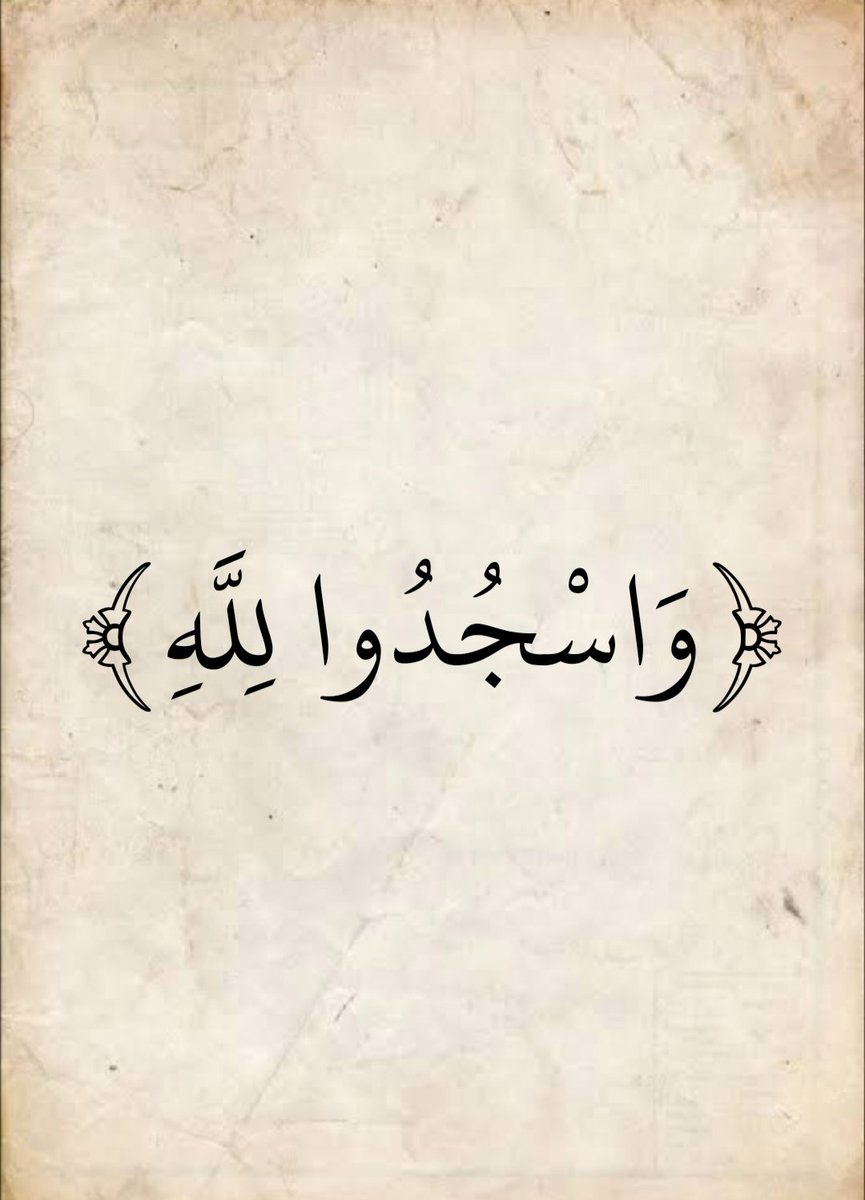 ﴿ وَاسْجُدُوا لِلَّهِ ﴾